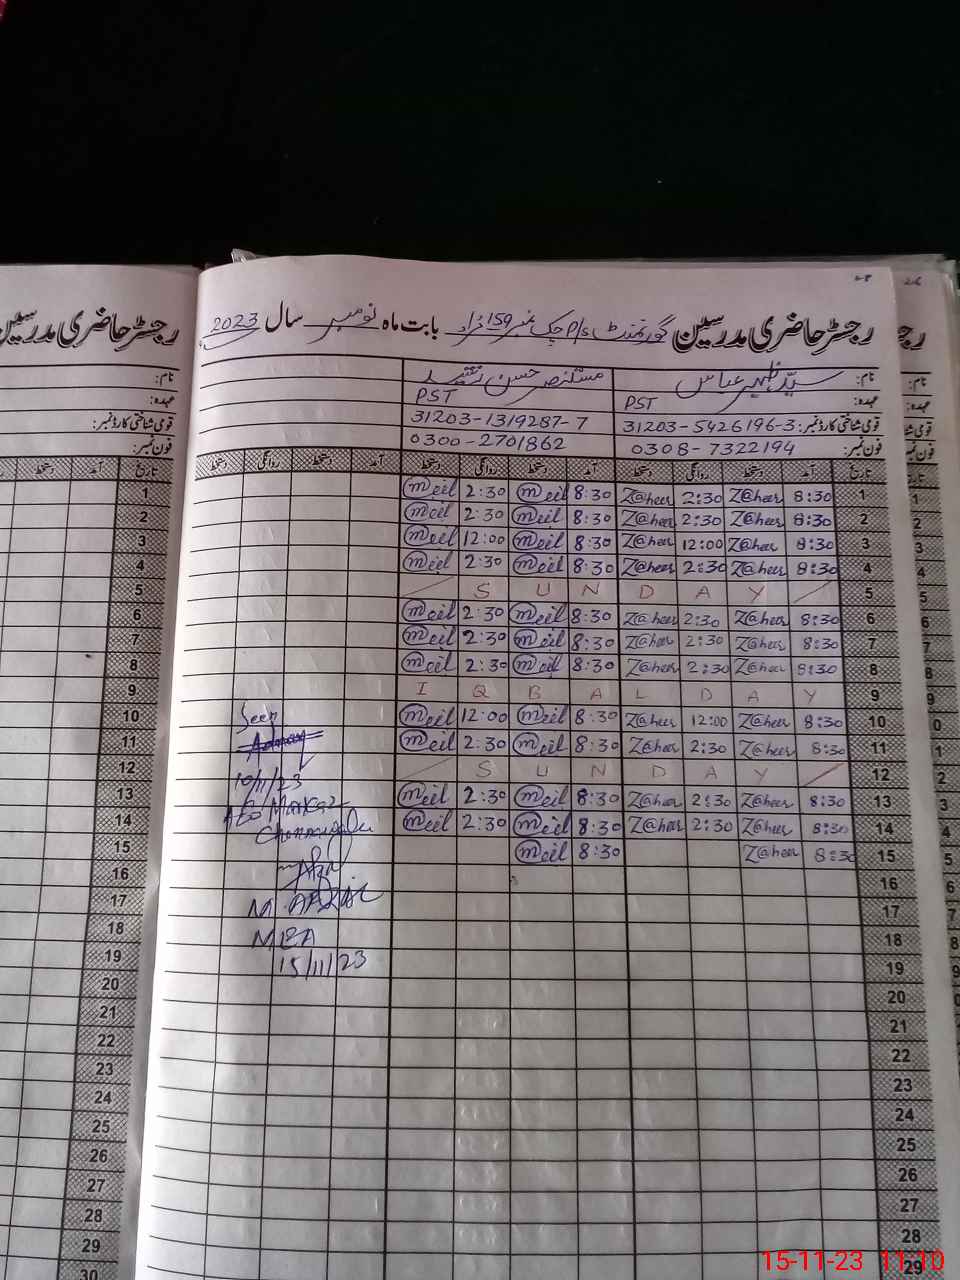 رجسٹر حاضری مدرسین گورنمنٹ P/S چک نمبر 159 مراد بابت ماہ نومبر سال 2023
نام: سید ظہیر عباس مستنصر حسن
عہدہ: PST PST
قومی شناختی کارڈ نمبر: 31203-5426196-3 31203-1319287-7
فون نمبر: 0308-7322194 0300-2701862
تاریخ آمد دستخط روانگی دستخط آمد دستخط روانگی دستخط آمد دستخط روانگی دستخط
1 8:30 Z@heer 2:30 Z@heer 8:30 meil 2:30 meil
2 8:30 Z@heer 2:30 Z@heer 8:30 meil 2:30 meil
3 8:30 Z@heer 12:00 Z@heer 8:30 meil 12:00 meil
4 8:30 Z@heer 2:30 Z@heer 8:30 meil 2:30 meil
5 S U N D A Y
6 8:30 Z@heer 2:30 Z@heer 8:30 meil 2:30 meil
7 8:30 Z@heer 2:30 Z@heer 8:30 meil 2:30 meil
8 8:30 Z@heer 2:30 Z@heer 8:30 meil 2:30 meil
9 I Q B A L D A Y
10 8:30 Z@heer 12:00 Z@heer 8:30 meil 12:00 meil
11 8:30 Z@heer 2:30 Z@heer 8:30 meil 2:30 meil
12 S U N D A Y
13 8:30 Z@heer 2:30 Z@heer 8:30 meil 2:30 meil
14 8:30 Z@heer 2:30 Z@heer 8:30 meil 2:30 meil
15 8:30 Z@heer 8:30 meil
16
17
18
19
20
21
22
23
24
25
26
27
28
29
Seen
10/11/23
AEO Markaz
MEA
15/11/23
رجسٹر حاضری مدرسین
نام:
عہدہ:
قومی شناختی کارڈ نمبر:
فون نمبر:
تاریخ آمد دستخط
1
2
3
4
5
6
7
8
9
10
11
12
13
14
15
16
17
18
19
20
21
22
23
24
25
26
27
28
29
30
15-11-23 11:10